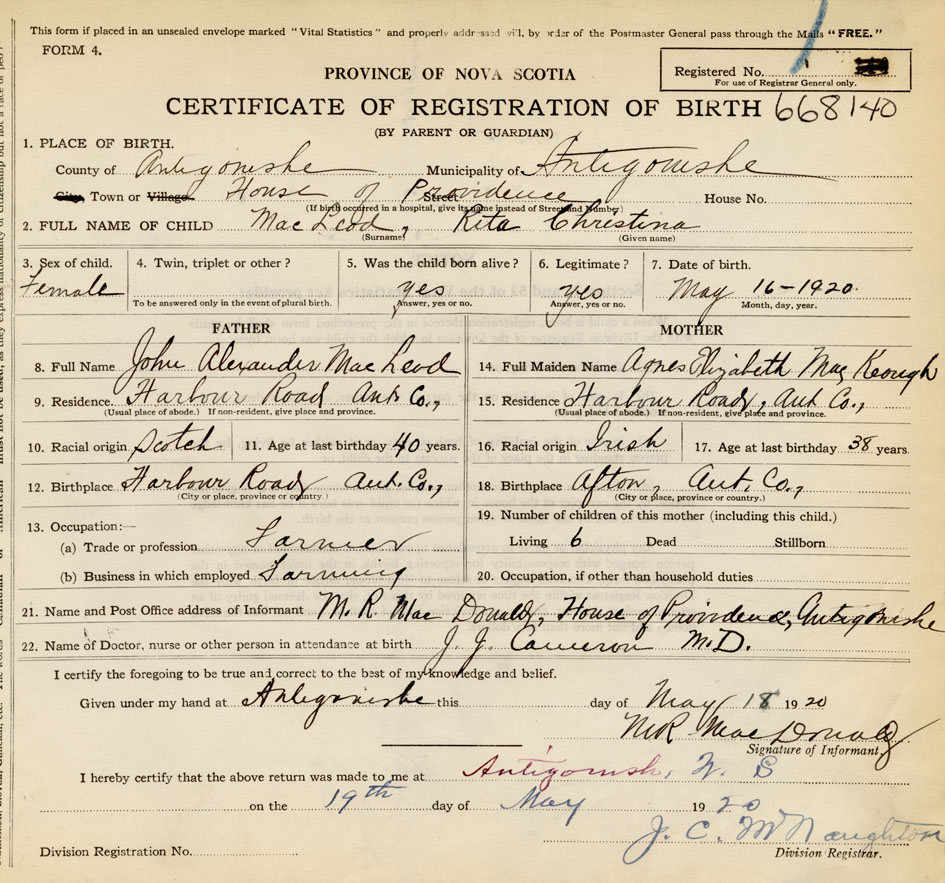 This form if placed in an unsealed envelope marked "Vital Statistics" and properly addressed will, by order of the Postmaster General pass through the Mails "FREE."
FORM 4.
PROVINCE OF NOVA SCOTIA
Registered No.
For use of Registrar General only.
CERTIFICATE OF REGISTRATION OF BIRTH 668140
(BY PARENT OR GUARDIAN)
1. PLACE OF BIRTH.
County of Antigonishe Municipality of Antigonishe
City, Town or Village House of Providence Street House No.
(If birth occurred in a hospital, give its name instead of Street and Number)
2. FULL NAME OF CHILD MacLeod, Rita Christina
(Surname) (Given name)
3. Sex of child. 4. Twin, triplet or other? 5. Was the child born alive? 6. Legitimate? 7. Date of birth.
Female yes yes May 16-1920.
To be answered only in the event of plural birth. Answer, yes or no. Answer, yes or no. Month, day, year.
FATHER MOTHER
8. Full Name John Alexander MacLeod 14. Full Maiden Name Agnes Elizabeth MacKeough
9. Residence Harbour Road Ant. Co., 15. Residence Harbour Road, Ant. Co.,
(Usual place of abode.) If non-resident, give place and province. (Usual place of abode.) If non-resident, give place and province.
10. Racial origin Scotch 11. Age at last birthday 40 years. 16. Racial origin Irish 17. Age at last birthday 38 years.
12. Birthplace Harbour Road Ant. Co., 18. Birthplace Afton, Ant. Co.,
(City or place, province or country.) (City or place, province or country.)
13. Occupation:— 19. Number of children of this mother (including this child.)
(a) Trade or profession Farmer Living 6 Dead Stillborn
(b) Business in which employed Farming 20. Occupation, if other than household duties
21. Name and Post Office address of Informant M. R. MacDonald, House of Providence, Antigonishe
22. Name of Doctor, nurse or other person in attendance at birth J. J. Cameron M.D.
I certify the foregoing to be true and correct to the best of my knowledge and belief.
Given under my hand at Antigonishe this day of May 18 1920
M R MacDonald
Signature of Informant.
I hereby certify that the above return was made to me at Antigonish, N. S
on the 19th day of May 1920
J. C. McNaughton
Division Registration No. Division Registrar.